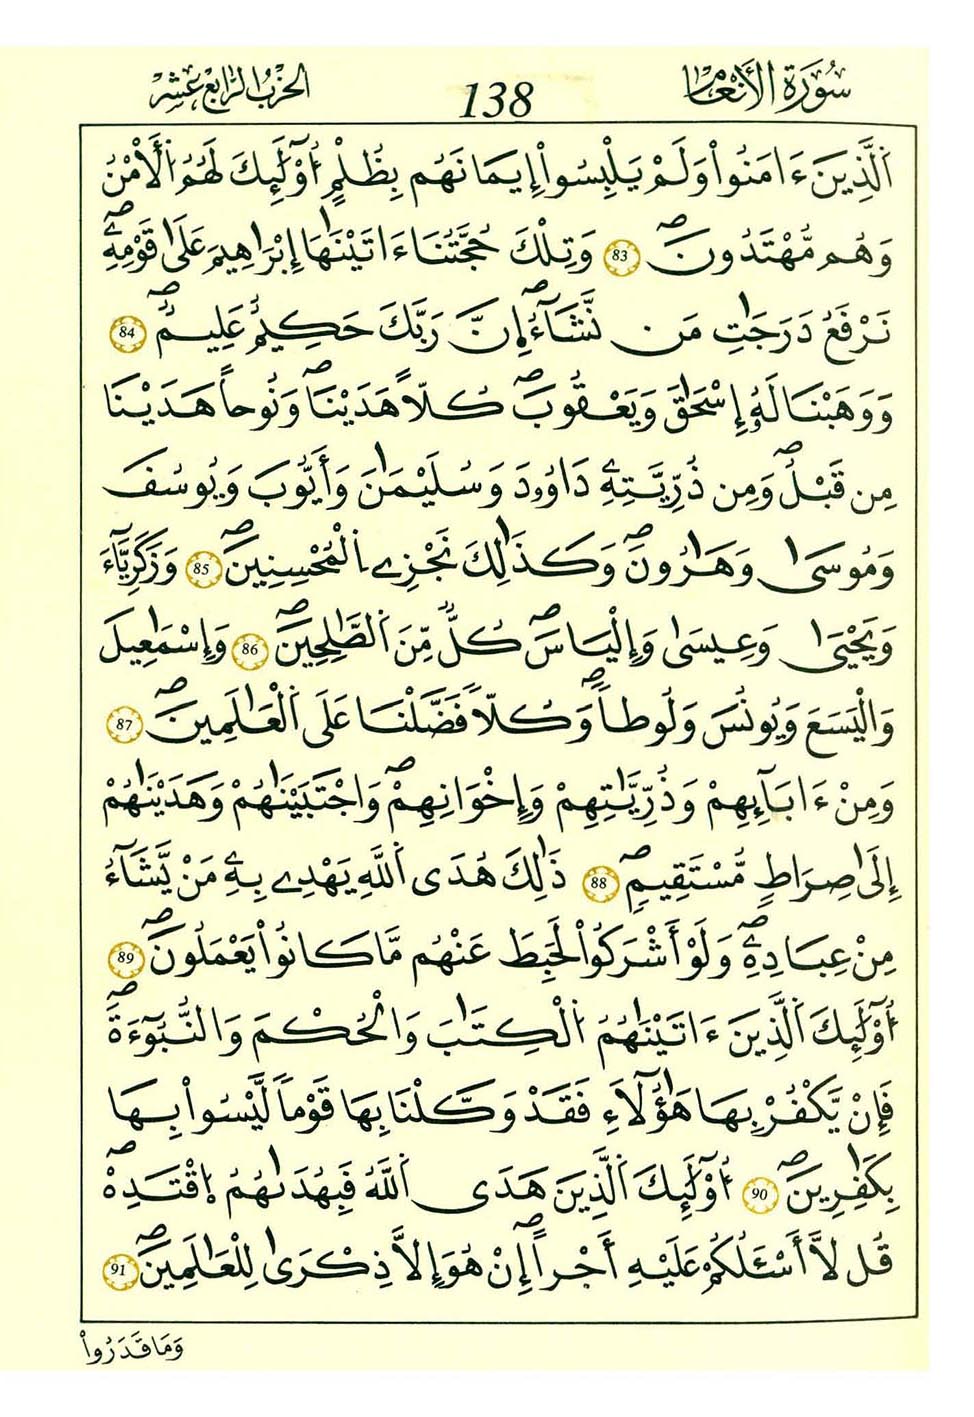 سُورَةُ الأَنْعَامِ 138 الحِزْبُ الرَّابِعَ عَشَرَ
اَ۬لذِينَ ءَامَنُواْ وَلَمْ يَلْبِسُواْ إِيمَٰنَهُم بِظُلْمٍ ا۟وْلَٰٓئِكَ لَهُمُ اُ۬لَامْنُ
وَهُم مُّهْتَدُونَۖ 83 وَتِلْكَ حُجَّتُنَا ءَاتَيْنَٰهَا إِبْرَٰهِيمَ عَلَىٰ قَوْمِهِۦۖ
نَرْفَعُ دَرَجَٰتِ مَن نَّشَآءُۖ اِ۪نَّ رَبَّكَ حَكِيمٌ عَلِيمٌۖ 84
وَوَهَبْنَا لَهُۥٓ إِسْحَٰقَ وَيَعْقُوبَۖ كُلّاً هَدَيْنَاۖ وَنُوحاً هَدَيْنَا
مِن قَبْلُۖ وَمِن ذُرِّيَّتِهِۦ دَاوُۥدَ وَسُلَيْمَٰنَ وَأَيُّوبَ وَيُوسُفَ
وَمُوسَىٰ وَهَٰرُونَۖ وَكَذَٰلِكَ نَجْزِے اِ۬لْمُحْسِنِينَۖ 85 وَزَكَرِيَّآءَ
وَيَحْيَىٰ وَعِيسَىٰ وَإِلْيَاسَۖ كُلٌّ مِّنَ اَ۬لصَّٰلِحِينَۖ 86 وَإِسْمَٰعِيلَ
وَالْيَسَعَ وَيُونُسَ وَلُوطاًۖ وَكُلّاً فَضَّلْنَا عَلَى اَ۬لْعَٰلَمِينَۖ 87
وَمِنْ ءَابَآئِهِمْ وَذُرِّيَّٰتِهِمْ وَإِخْوَانِهِمْۖ وَاجْتَبَيْنَٰهُمْ وَهَدَيْنَٰهُمْ
إِلَىٰ صِرَاطٍ مُّسْتَقِيمٍۖ 88 ذَٰلِكَ هُدَى اَ۬للَّهِ يَهْدِے بِهِۦ مَنْ يَّشَآءُ
مِنْ عِبَادِهِۦۖ وَلَوْ أَشْرَكُواْ لَحَبِطَ عَنْهُم مَّا كَانُواْ يَعْمَلُونَۖ 89
أُ۟وْلَٰٓئِكَ اَ۬لذِينَ ءَاتَيْنَٰهُمُ اُ۬لْكِتَٰبَ وَالْحُكْمَ وَالنُّبُوٓءَةَۖ
فَإِنْ يَّكْفُرْ بِهَا هَٰٓؤُلَآءِ فَقَدْ وَكَّلْنَا بِهَا قَوْماً لَّيْسُواْ بِهَا
بِكَٰفِرِينَۖ 90 أُ۟وْلَٰٓئِكَ اَ۬لذِينَ هَدَى اَ۬للَّهُ فَبِهُدَىٰهُمُ اُ۪قْتَدِهْۖ
قُل لَّآ أَسْـَٔلُكُمْ عَلَيْهِ أَجْراًۖ اِنْ هُوَ إِلَّا ذِكْرَىٰ لِلْعَٰلَمِينَۖ 91
وَمَا قَدَرُواْ